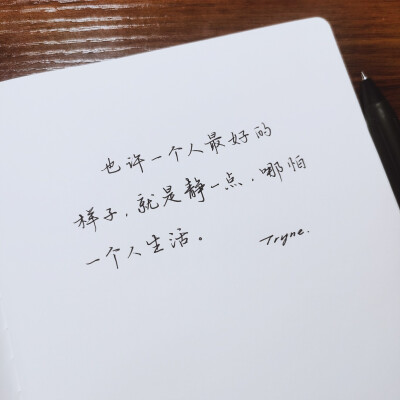 也许一个人最好的
样子，就是静一点，哪怕
一个人生活。
Tryne.